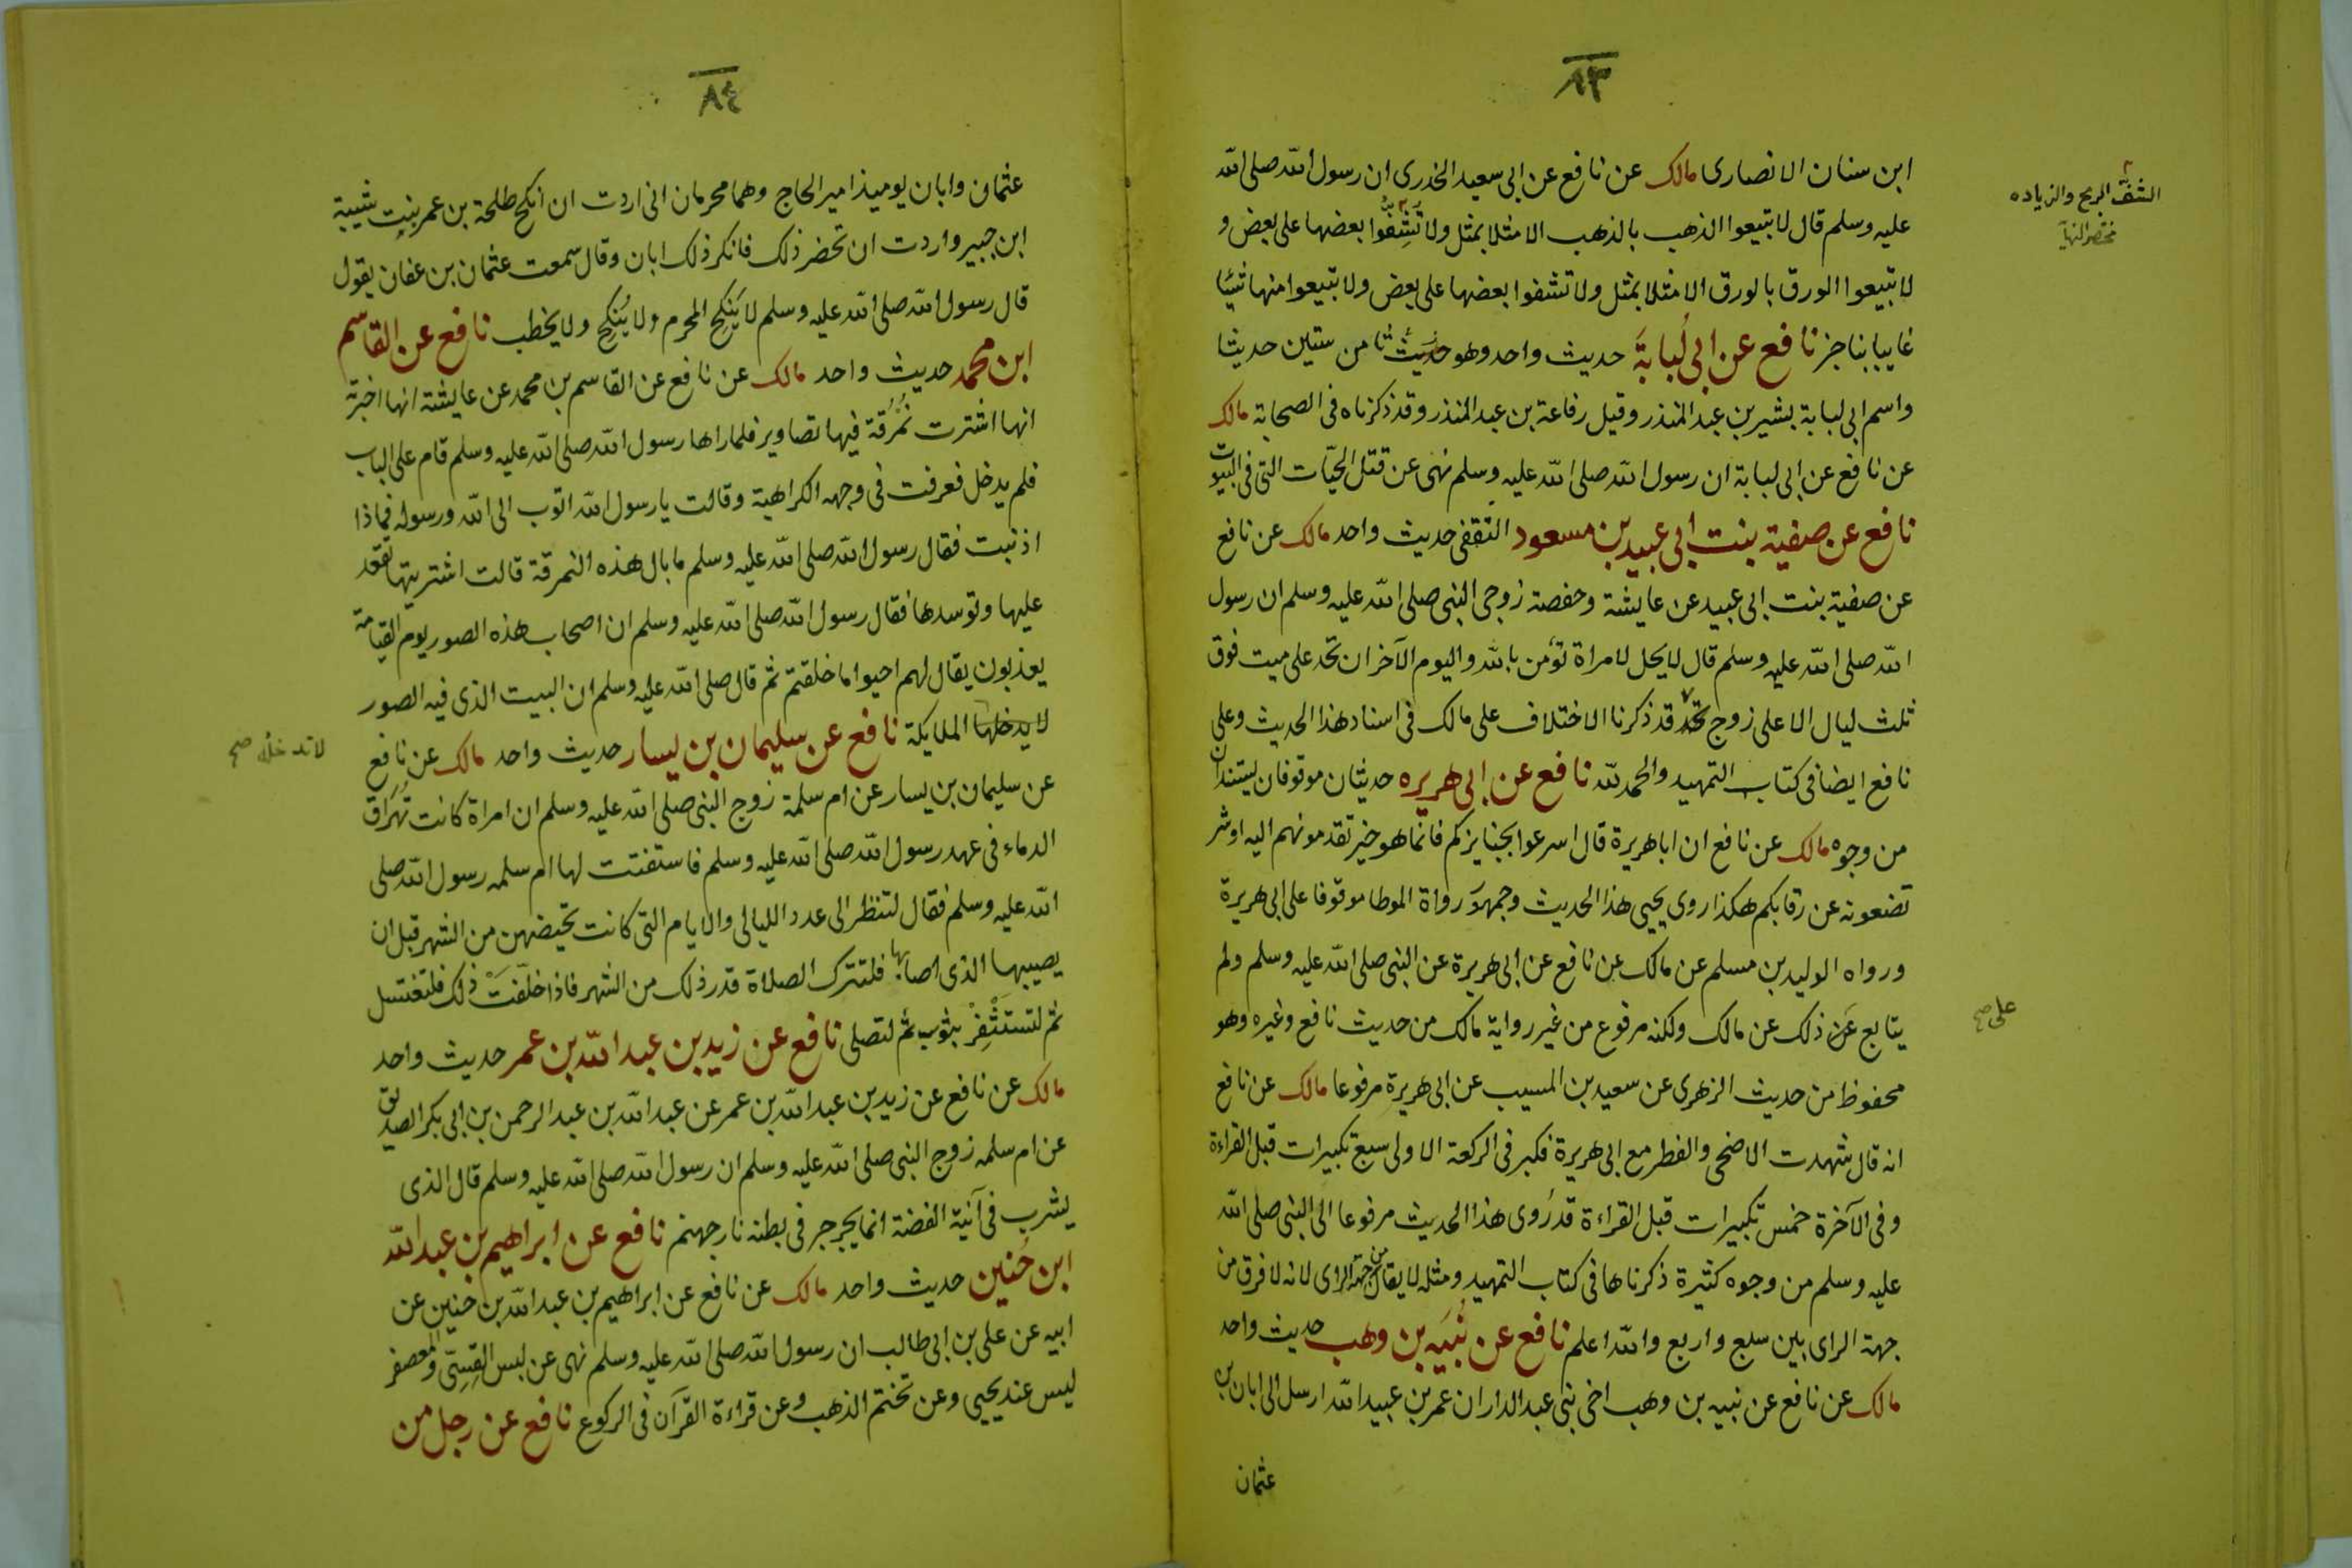 ٨٣
ابن سنان الانصارى مالك عن نافع عن ابى سعيد الخدرى ان رسول الله صلى الله
عليه وسلم قال لا تبيعوا الذهب بالذهب الا مثلا بمثل ولا تُشِفّوا بعضها على بعض و
لا تبيعوا الورق بالورق الا مثلا بمثل ولا تشفوا بعضها على بعض ولا تبيعوا منها شيئا
غايبا بناجز نافع عن ابى لُبابَةَ حديث واحد وهو حديث من ستين حديثا
واسم ابى لبابة بشير بن عبد المنذر وقيل رفاعة بن عبد المنذر وقد ذكرناه فى الصحابة مالك
عن نافع عن ابى لبابة ان رسول الله صلى الله عليه وسلم نهى عن قتل الحيّات التى فى البيوت
نافع عن صفية بنت ابى عبيد بن مسعود الثقفى حديث واحد مالك عن نافع
عن صفية بنت ابى عبيد عن عايشة وحفصة زوجى النبى صلى الله عليه وسلم ان رسول
الله صلى الله عليه وسلم قال لا يحل لامراة تؤمن بالله واليوم الآخر ان تحد على ميت فوق
ثلث ليال الا على زوج قد ذكرنا الاختلاف على مالك فى اسناد هذا الحديث وعلى
نافع ايضا فى كتاب التمهيد والحمد لله نافع عن ابى هريره حديثان موقوفان يستندان
من وجوه مالك عن نافع ان ابا هريرة قال اسرعوا بجنايزكم فانما هو خير تقدمونهم اليه او شر
تضعونه عن رقابكم هكذا روى يحيى هذا الحديث وجمهور رواة الموطا موقوفا على ابى هريرة
ورواه الوليد بن مسلم عن مالك عن نافع عن ابى هريرة عن النبى صلى الله عليه وسلم ولم
يتابع عن ذلك عن مالك ولكنه مرفوع من غير رواية مالك من حديث نافع وغيره وهو
محفوظ من حديث الزهرى عن سعيد بن المسيب عن ابى هريرة مرفوعا مالك عن نافع
انه قال شهدت الاضحى والفطر مع ابى هريرة فكبر فى الركعة الاولى سبع تكبيرات قبل القراءة
وفى الآخرة خمس تكبيرات قبل القراءة قد رُوى هذا الحديث مرفوعا الى النبى صلى الله
عليه وسلم من وجوه كثيرة ذكرناها فى كتاب التمهيد ومثله لا يقال من جهة الراى لانه لا فرق من
جهة الراى بين سبع واربع والله اعلم نافع عن نُبَيه بن وهب حديث واحد
مالك عن نافع عن نبيه بن وهب اخى بنى عبد الدار ان عمر بن عبيد الله ارسل الى ابان بن
عثمان
الشفّ الربح والزياده
مختصر النهاية
على صح
٨٤
عثمان وابان يوميذ امير الحاج وهما محرمان انى اردت ان انكح طلحة بن عمر بنت شيبة
ابن جبير واردت ان تحضر ذلك فانكر ذلك ابان وقال سمعت عثمان بن عفان يقول
قال رسول الله صلى الله عليه وسلم لا يَنكِح المحرم ولا يُنكِح ولا يخطب نافع عن القاسم
ابن محمد حديث واحد مالك عن نافع عن القاسم بن محمد عن عايشة انها اخبرته
انها اشترت نُمْرُقة فيها تصاوير فلما راها رسول الله صلى الله عليه وسلم قام على الباب
فلم يدخل فعرفت فى وجهه الكراهية وقالت يا رسول الله اتوب الى الله ورسوله فماذا
اذنبت فقال رسول الله صلى الله عليه وسلم ما بال هذه النمرقة قالت اشتريتها تقعد
عليها وتوسدها فقال رسول الله صلى الله عليه وسلم ان اصحاب هذه الصور يوم القيامة
يعذبون يقال لهم احيوا ما خلقتم ثم قال صلى الله عليه وسلم ان البيت الذى فيه الصور
لا يدخلها الملايكة نافع عن سليمان بن يسار حديث واحد مالك عن نافع
عن سليمان بن يسار عن ام سلمة زوج النبى صلى الله عليه وسلم ان امراة كانت تُهَرَاق
الدماء فى عهد رسول الله صلى الله عليه وسلم فاستفتت لها ام سلمه رسول الله صلى
الله عليه وسلم فقال لتنظر الى عدد الليالى والايام التى كانت تحيضهن من الشهر قبل ان
يصيبها الذى اصابها فلتترك الصلاة قدر ذلك من الشهر فاذا خلّفَتْ ذلك فلتغتسل
ثم لتستَثْفِرْ بثوب ثم لتصلى نافع عن زيد بن عبد الله بن عمر حديث واحد
مالك عن نافع عن زيد بن عبد الله بن عمر عن عبد الله بن عبد الرحمن بن ابى بكر الصديق
عن ام سلمه زوج النبى صلى الله عليه وسلم ان رسول الله صلى الله عليه وسلم قال الذى
يشرب فى آنية الفضة انما يجرجر فى بطنه نار جهنم نافع عن ابراهيم بن عبد الله
ابن حُنين حديث واحد مالك عن نافع عن ابراهيم بن عبد الله بن حنين عن
ابيه عن على بن ابى طالب ان رسول الله صلى الله عليه وسلم نهى عن لبس القِسِّى والمعصفر
ليس عند يحيى وعن تختم الذهب وعن قراءة القرآن فى الركوع نافع عن رجل من
لا تدخله صح